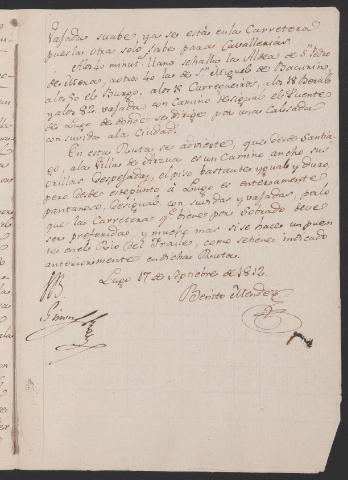 vajada suabe, ya se está en la Carretera
pues la otra solo sabe para Cavallerias.
A los 40 minut.s llano se hallan la Aldea de S.n Pedro
de Mera, a otra 40 la de S.n Miguel de Bacurin,
a los 50 el Burgo, a los 8 Carregueiros, a los 18 Boralo
y a los 82 vajada con Camino desigual el Puente
de Lugo de donde se dirige por una Calzada
con suvida a la Ciudad.
En esta Ruta se advierte, que desde Santia-
go, a la Villa de Arzua es un Camino ancho sus
orillas despejadas, el piso bastante ygual y duro,
pero desde este punto a Lugo es enteramente
pantanoso, desigual con suvidas y vajadas, por lo
que la Carretera q.e viene por Sobrado deve
ser preferida, y mucho mas si se hace un puen
te en el Rio del Trades, como se tiene indicado
anteriormente en dicha Ruta.
Lugo 17 de Septiembre de 1812
Benito Mendez